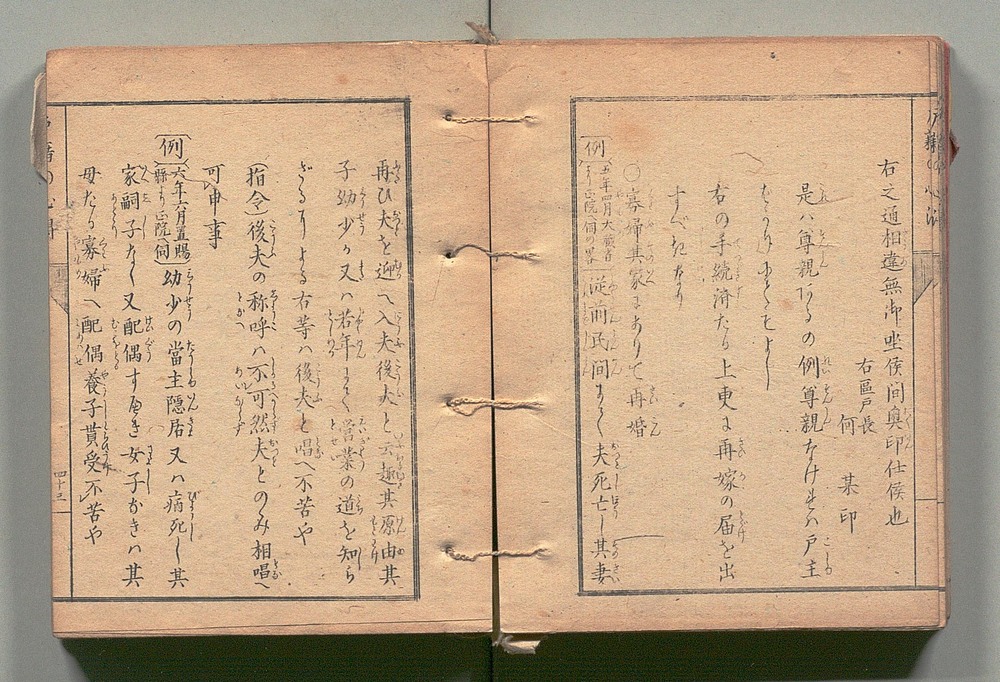 右之通相違無御坐侯間奥印仕侯也
右區戸長
何　某　印
是ハ尊親あるの例尊親なけれハ戸主
はかりにてもよし
右の手続済たら上更に再嫁の届を出
すべきなり
○寡婦其家にありて再婚
〔例〕五年四月大蔵省より正院へ伺の畧 従前民間にて夫死亡し其妻
再ひ夫を迎へ入夫後夫と云趣其原由其
子幼少か又ハ若年にて営業の道を知ら
ざるによる右等ハ後夫と唱へ不苦や
(指令)後夫の称呼ハ不可然夫とのみ相唱へ
可申事
〔例〕六年六月置賜縣より正院へ伺 幼少の當主隠居又ハ病死し其
家嗣子なく又配偶すべき女子なきハ其
母たる寡婦へ配偶養子貰受不苦や
四十三